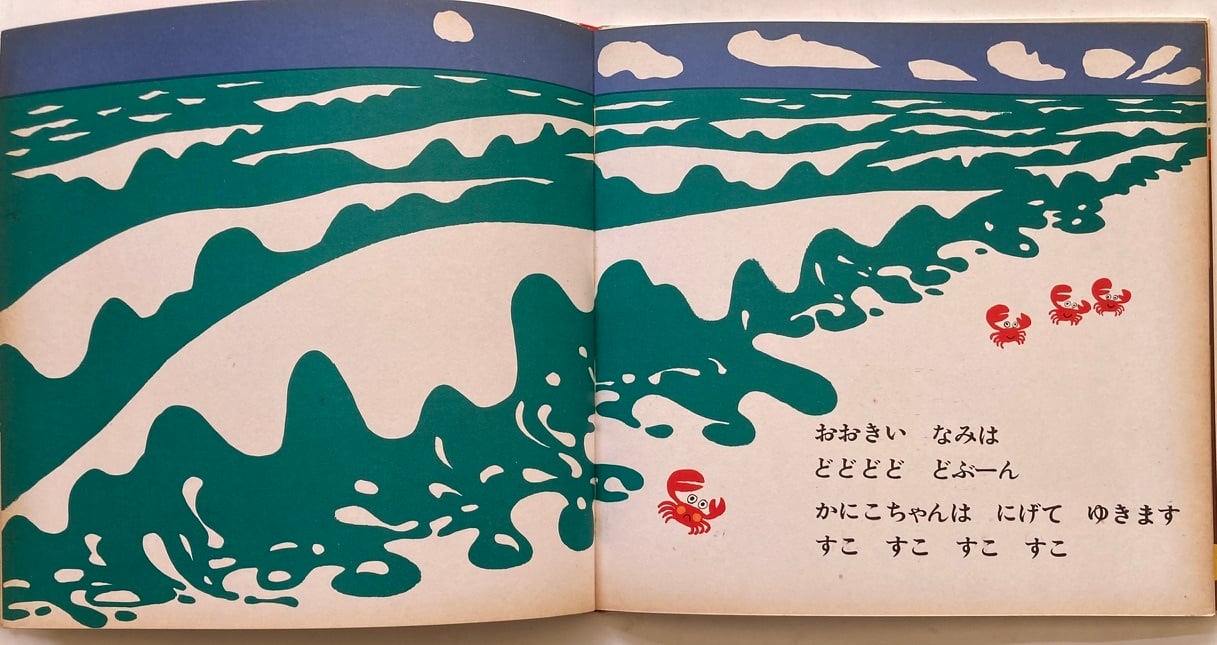 おおきい　なみは
どどどど　どぶーん
かにこちゃんは　にげて　ゆきます
すこ　すこ　すこ　すこ